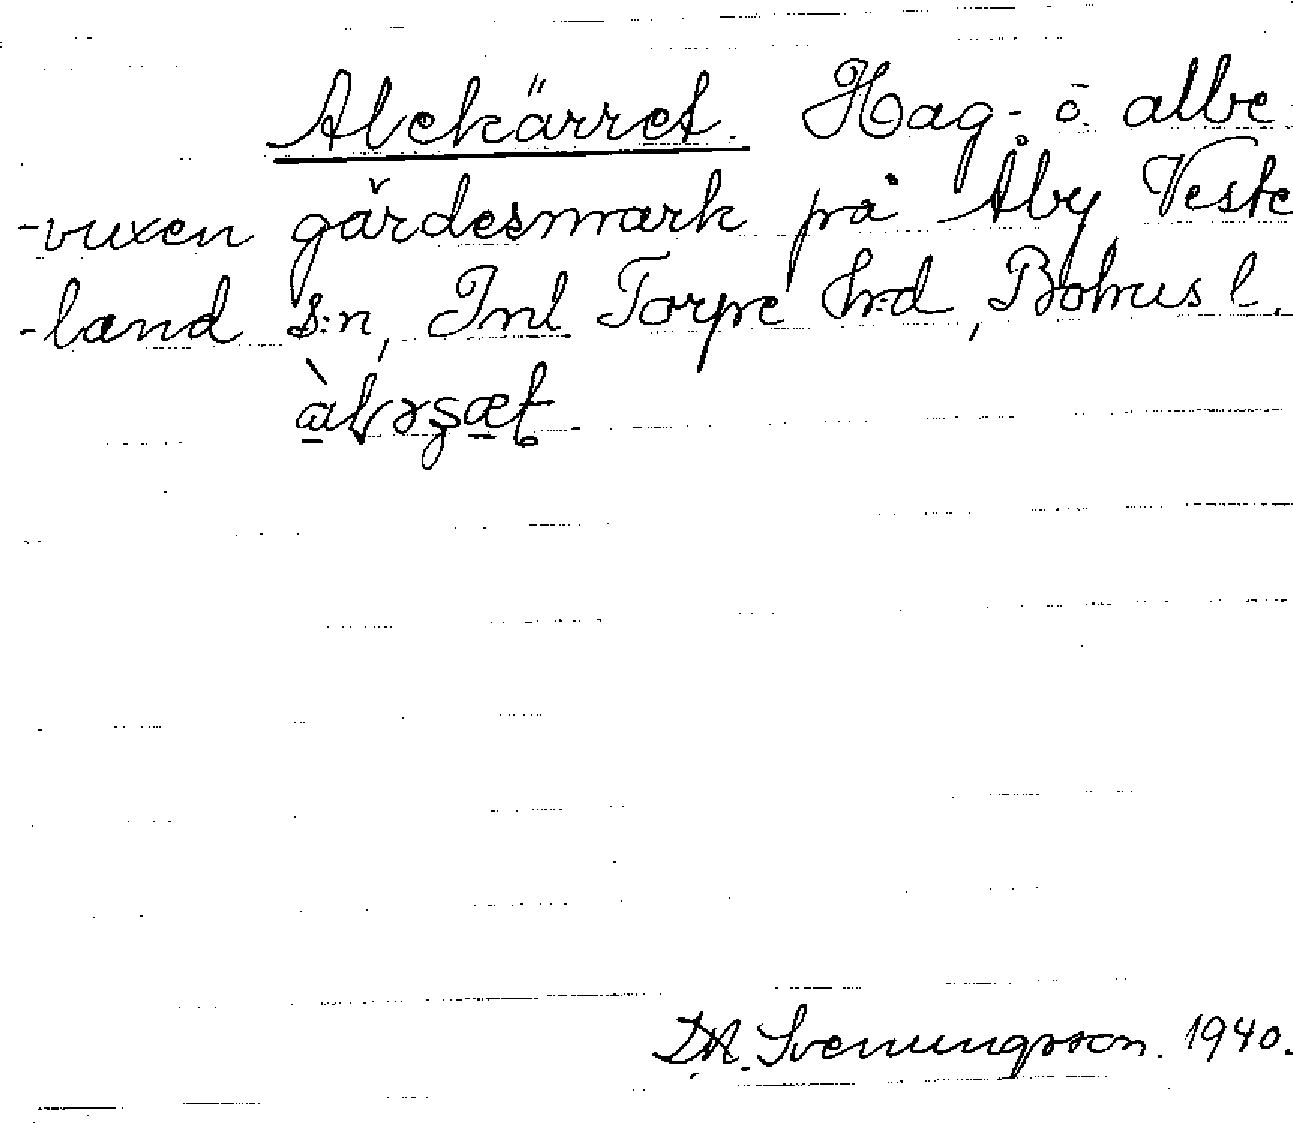 Alekärret. Hag- o. albe
-vuxen gärdesmark på Åby, Veste
-land s:n, Inl. Torpe hrd, Bohusl.
Svenungsson. 1940.